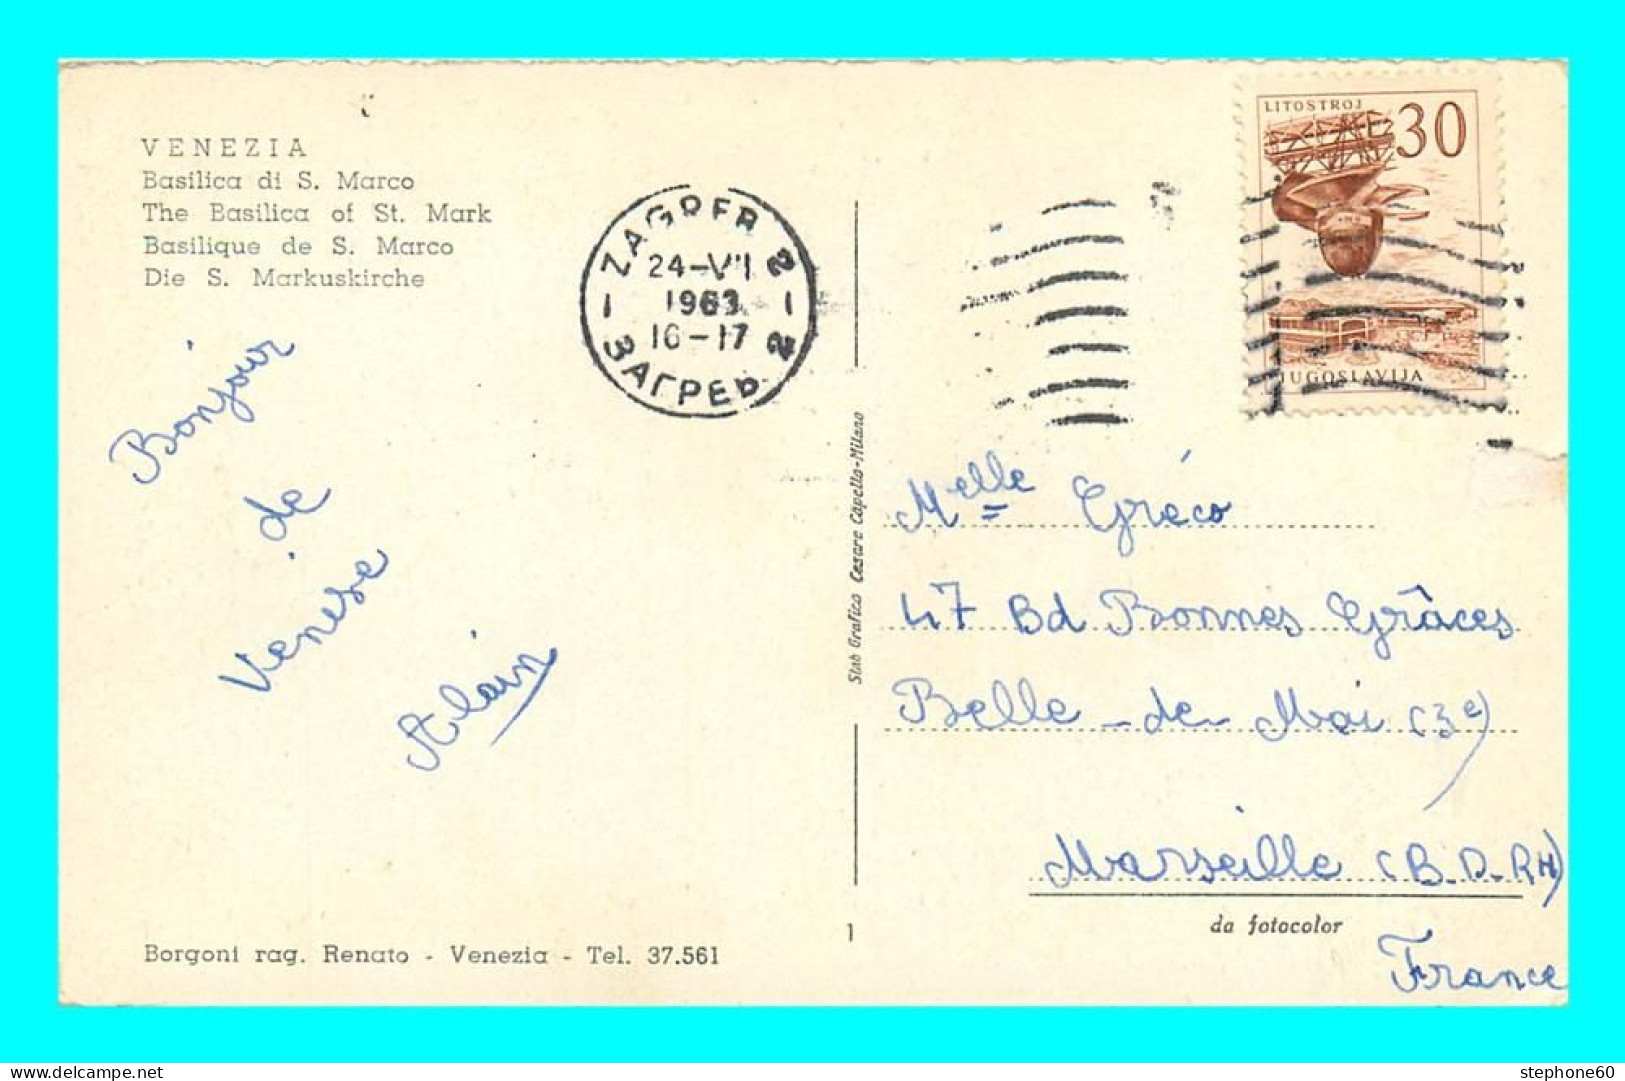 VENEZIA
Basilica di S. Marco
The Basilica of St. Mark
Basilique de S. Marco
Die S. Markuskirche
Bonjour
de
Venise
Alain
Borgoni rag. Renato - Venezia - Tel. 37.561
ZAGREB 2
24-VII
1963
16-17
ЗАГРЕБ 2
Stab Grafico Cesare Capello-Milano
1
LITOSTROJ
30
JUGOSLAVIJA
Melle Gréco
47 Bd Bonnes Grâces
Belle-de-Mai (3e)
Marseille (B.D.RH)
da fotocolor
France
stephone60